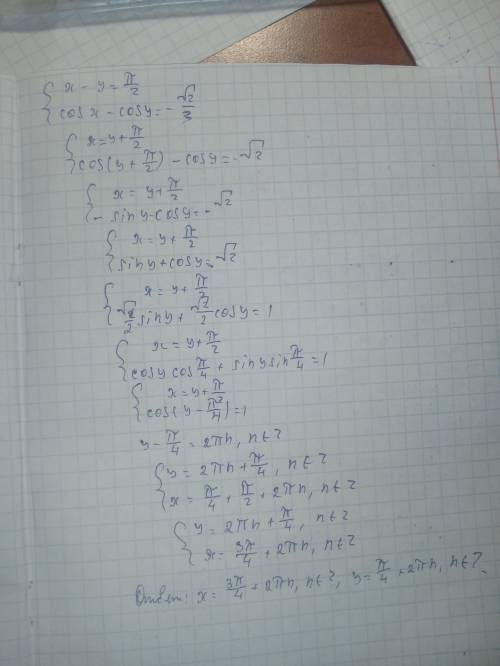 { x - y = π/2
{ cos x - cos y = - √2/2
{ x = y + π/2
{ cos(y + π/2) - cos y = -√2
{ x = y + π/2
{ - sin y - cos y = -√2
{ x = y + π/2
{ sin y + cos y = √2
{ x = y + π/2
{ √2/2 sin y + √2/2 cos y = 1
{ x = y + π/2
{ cos y cos π/4 + sin y sin π/4 = 1
{ x = y + π/2
{ cos(y - π/4) = 1
y - π/4 = 2πn, n ∈ Z
{ y = 2πn + π/4, n ∈ Z
{ x = π/4 + π/2 + 2πn, n ∈ Z
{ y = 2πn + π/4, n ∈ Z
{ x = 3π/4 + 2πn, n ∈ Z
Ответ: x = 3π/4 + 2πn, n ∈ Z, y = π/4 + 2πn, n ∈ Z.